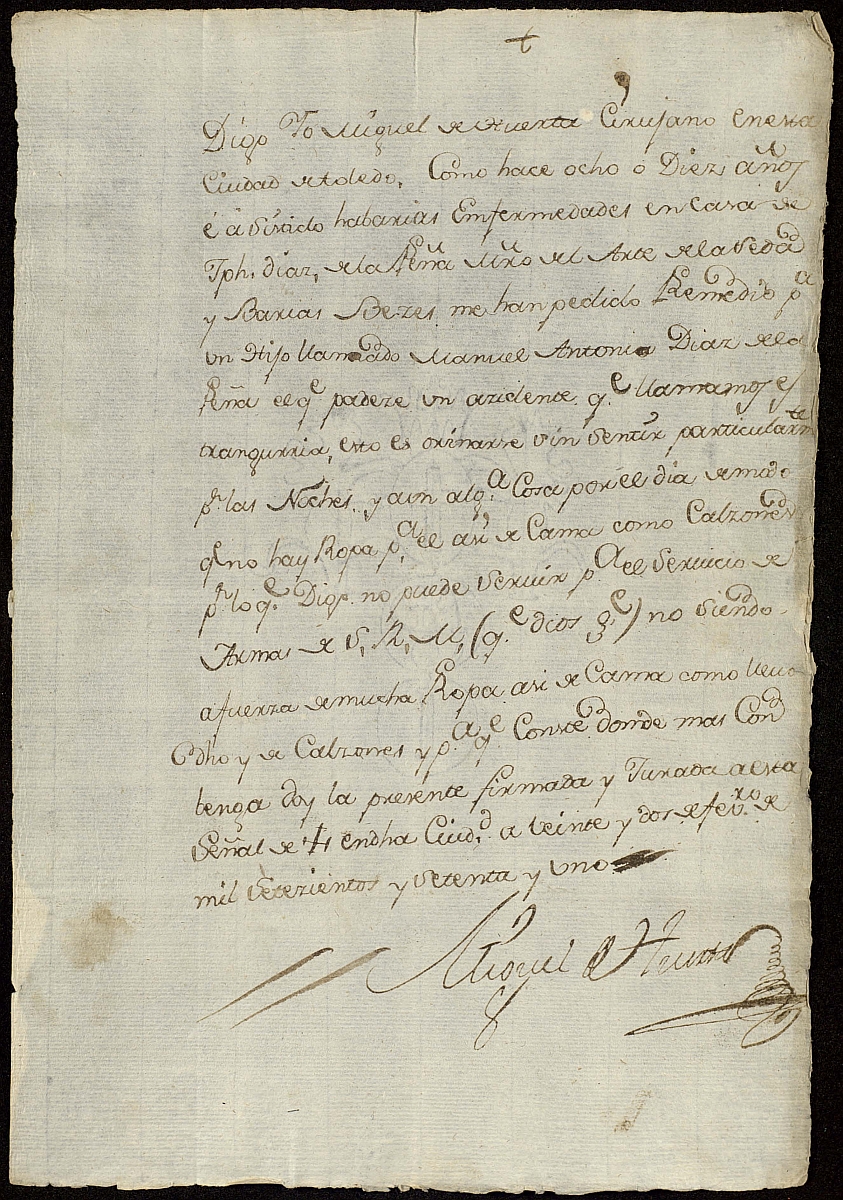 +
Digo Yo Miguel de Huerta Cirujano en esta
Ciudad de toledo, Como hace ocho ô Diez años
é asistido ha barias Emfermedades en Casa de
Jph. Diaz, de la Peña Mro del Arte de la Seda
y Barias Bezes me han pedido Remedio p.a
un Hijo llamado Manuel Antonio Diaz de la
Peña el q.e padeze un azidente q.e llamamos es
trangurria, esto es orinarse sin sentir particularm.te
p.r las Noches, y aun alg.a Cosa por el dia de modo
q.e no hay Ropa p.a el asi de Cama como Calzones
p.r lo q.e Digo no puede servir p.a el Servicio de
Armas de S, R, M, (q.e dios g.e) no siendo
a fuerza de mucha Ropa asi de Cama como llevo
dho y de Calzones y p.a q.e Conste donde mas Con
benga doy la presente firmada y Jurada a esta
señal de + en dha Ciud.d a veinte y dos de fev.ro de
mil setezientos y setenta y uno
Miguel de Huerta